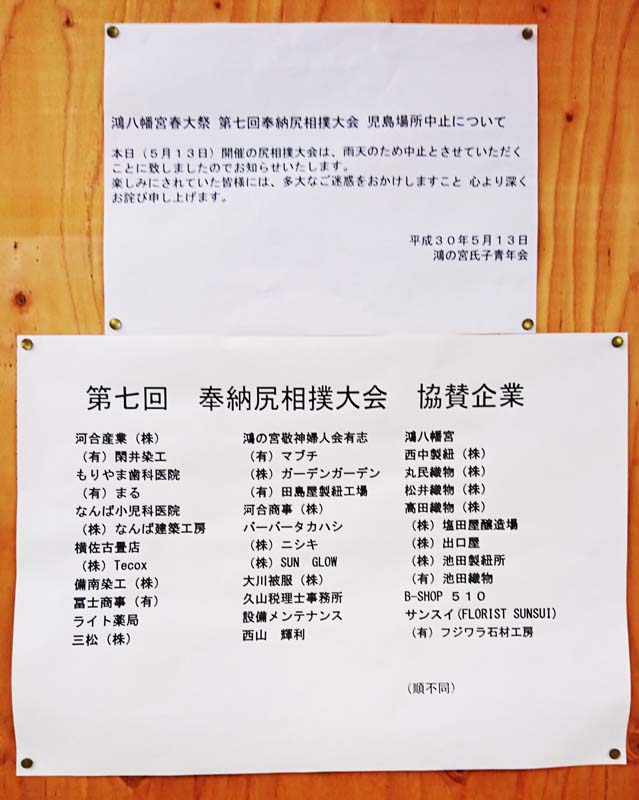 鴻八幡宮春大祭 第七回奉納尻相撲大会 児島場所中止について
本日（５月１３日）開催の尻相撲大会は、雨天のため中止とさせていただく
ことに致しましたのでお知らせいたします。
楽しみにされていた皆様には、多大なご迷惑をおかけしますこと 心より深く
お詫び申し上げます。
平成３０年５月１３日
鴻の宮氏子青年会
第七回　奉納尻相撲大会　協賛企業
河合産業（株）
（有）閑井染工
もりやま歯科医院
（有）まる
なんば小児科医院
（株）なんば建築工房
横佐古畳店
（株）Tecox
備南染工（株）
冨士商事（有）
ライト薬局
三松（株）
鴻の宮敬神婦人会有志
（有）マブチ
（株）ガーデンガーデン
（有）田島屋製紐工場
河合商事（株）
バーバータカハシ
（株）ニシキ
（株）SUN　GLOW
大川被服（株）
久山税理士事務所
設備メンテナンス
西山　輝利
鴻八幡宮
西中製紐（株）
丸民織物（株）
松井織物（株）
高田織物（株）
（株）塩田屋醸造場
（株）出口屋
（株）池田製紐所
（有）池田織物
B-SHOP ５１０
サンスイ(FLORIST SUNSUI)
（有）フジワラ石材工房
（順不同）